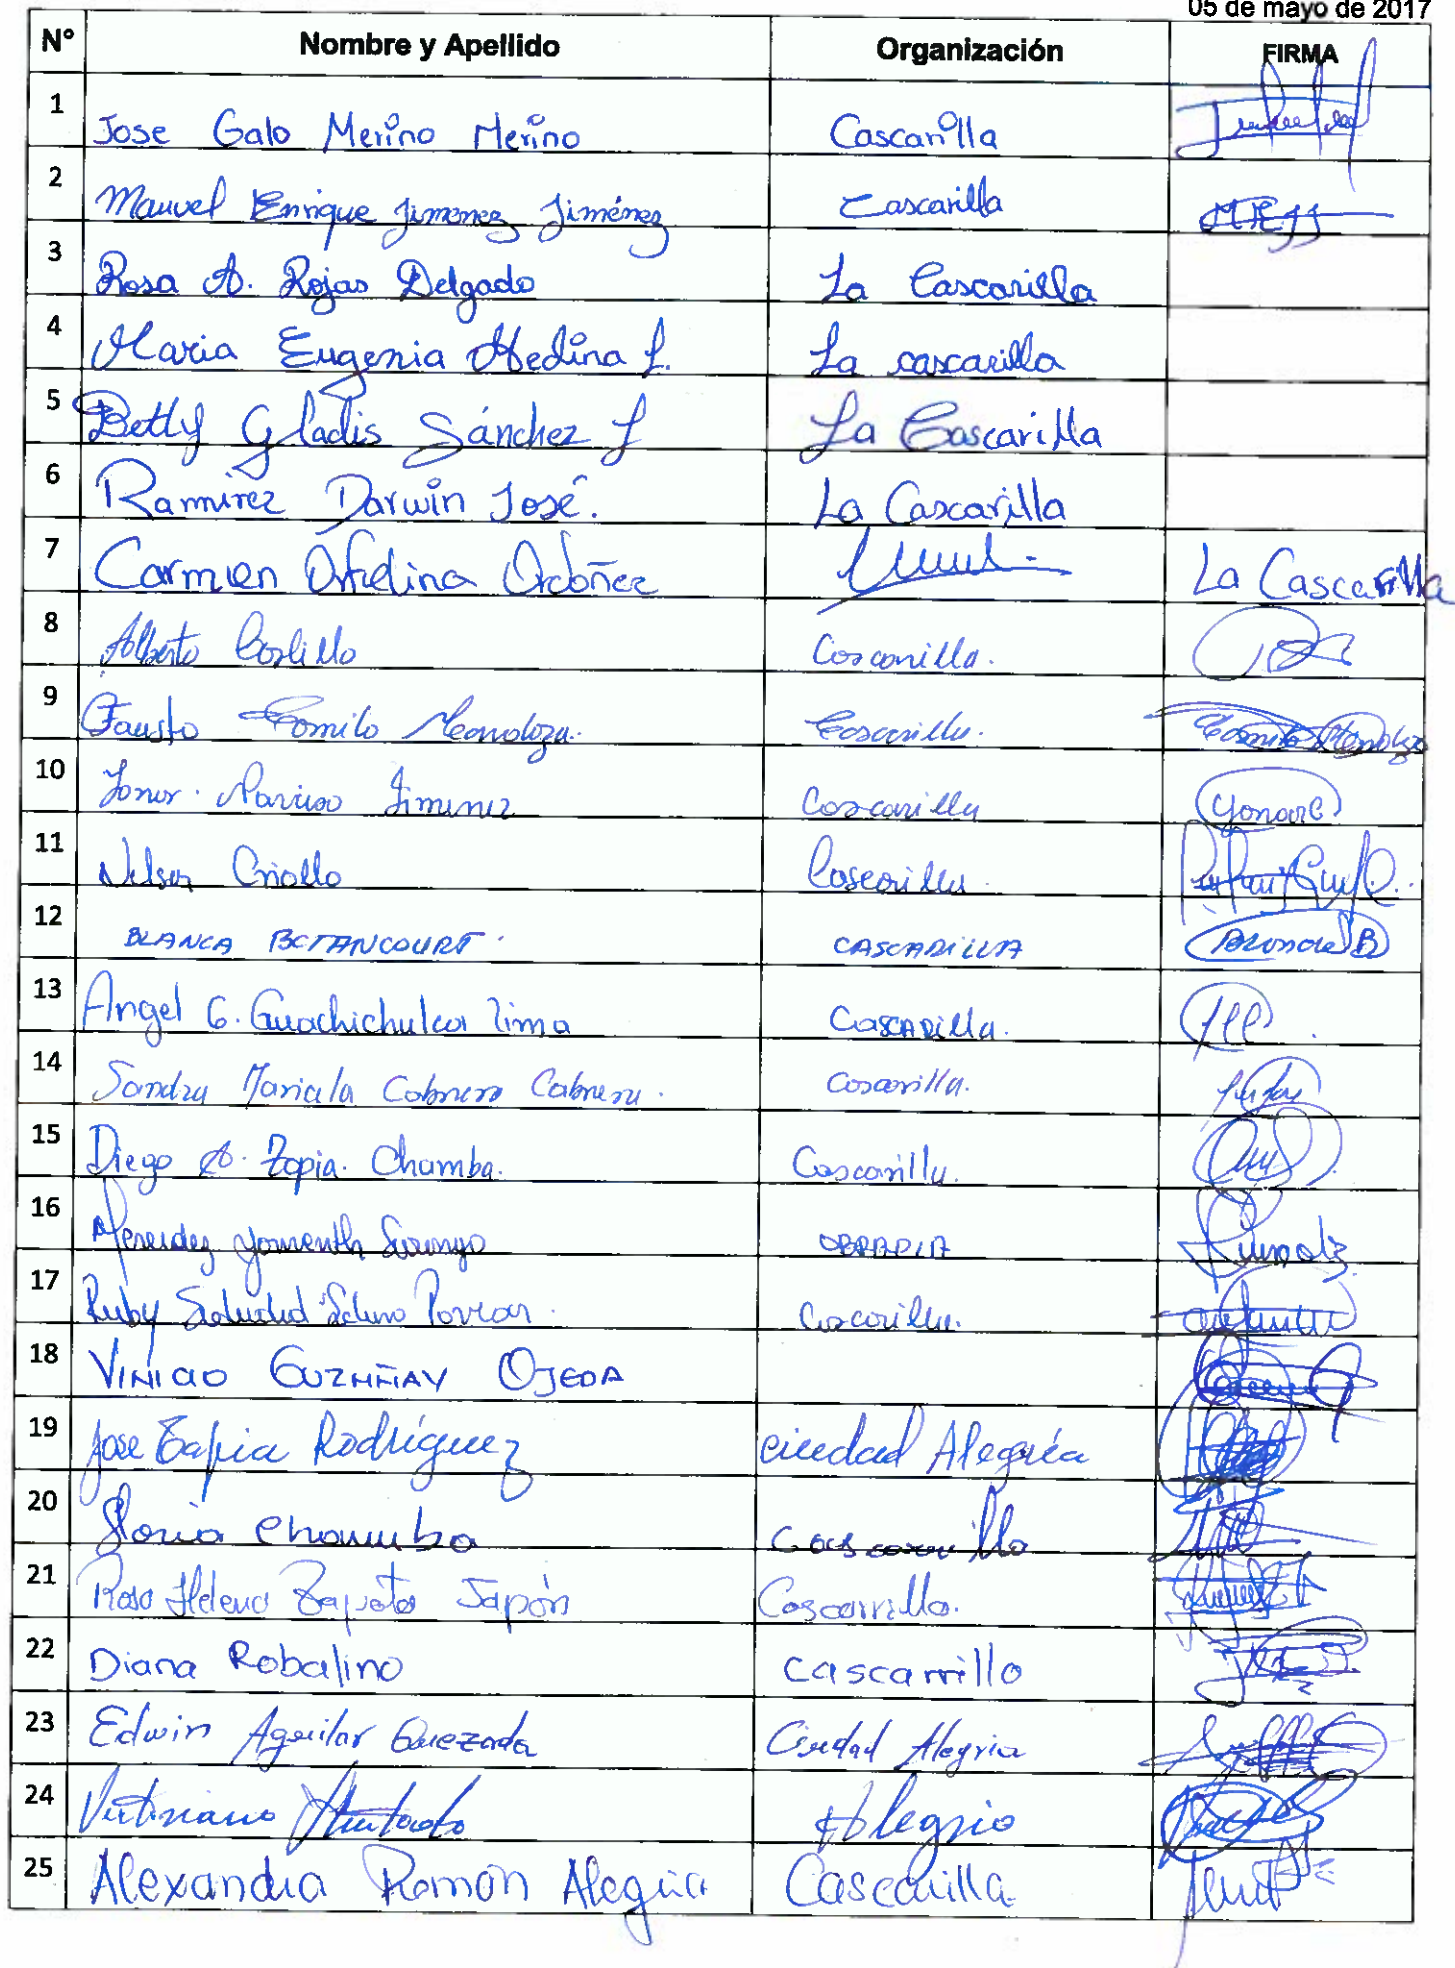 05 de mayo de 2017
N° Nombre y Apellido Organización FIRMA
1 Jose Galo Merino Merino Cascarilla
2 Manuel Enrique Jimenez Jiménez Cascarilla MEJJ
3 Rosa A. Rojas Delgado La Cascarilla
4 Maria Eugenia Medina L. La cascarilla
5 Betty Gladis Sánchez L La Cascarilla
6 Ramirez Darwin José. La Cascarilla
7 Carmen Ofelina Ordoñez La Cascarilla
8 Alberto Castillo Cascarilla.
9 Fausto Camilo Mendoza. Cascarilla. Camilo Mendoza
10 Narciso Jimenez Cascarilla
11 Nelson Criollo Cascarilla
12 BLANCA BETANCOURT. CASCARILLA Blanca B
13 Angel G. Guachichulca Lima CASCARILLA.
14 Sandra Mariela Cabrera Cabrera. Cascarilla.
15 Diego A. Tapia. Chamba. Cascarilla.
16 OBRAPIA
17 Ruby Soledad Cascarilla.
18 VINICIO GUZHÑAY OJEDA
19 Jose Tapia Rodríguez ciudad Alegría
20 Gloria Chamba Cascarilla
21 Rosa Helena Zapata Japón Cascarrilla.
22 Diana Robalino cascarrillo
23 Edwin Aguilar Quezada Ciudad Alegria
24 Victoriano Hurtado Alegria
25 Alexandra Ramón Alegria Cascarilla